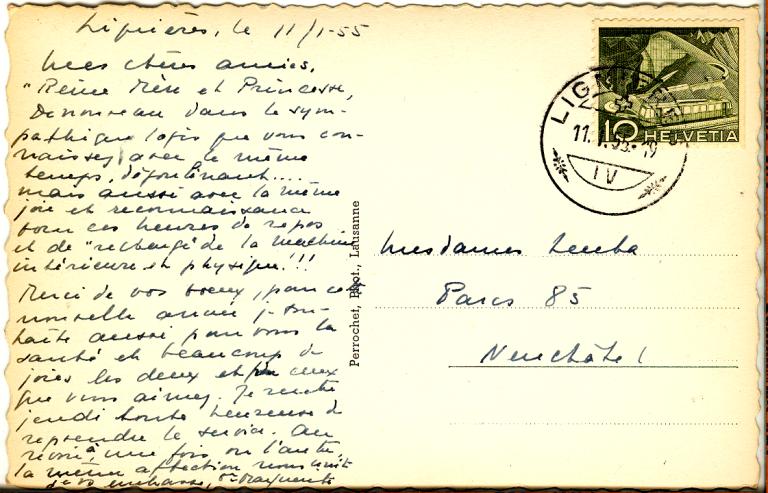 Lignières, le 11/1-55
Mes chères amies,
"Reine Mère et Princesse,
De nouveau dans le sym-
pathique logis que vous con-
naissez, avec le même
temps, dégoulinant....
mais aussi avec la même
joie et reconnaissance
pour ces heures de repos
et de "rechargé de la machine
intérieure et physique!!!
Merci de vos voeux, pour cette
nouvelle année je sou-
haite aussi pour vous la
santé et beaucoup de
joies les deux et ceux
que vous aimez. Je rentre
jeudi toute heureuse de
reprendre le service. Au
revoir, à une fois ou l'autre,
la même affection nous unit
vous embrasse,
Perrochet, Phot., Lausanne
LIGNIÈRES
11. 55.-19
IV
10 HELVETIA
Mesdames
Parcs 85
Neuchâtel